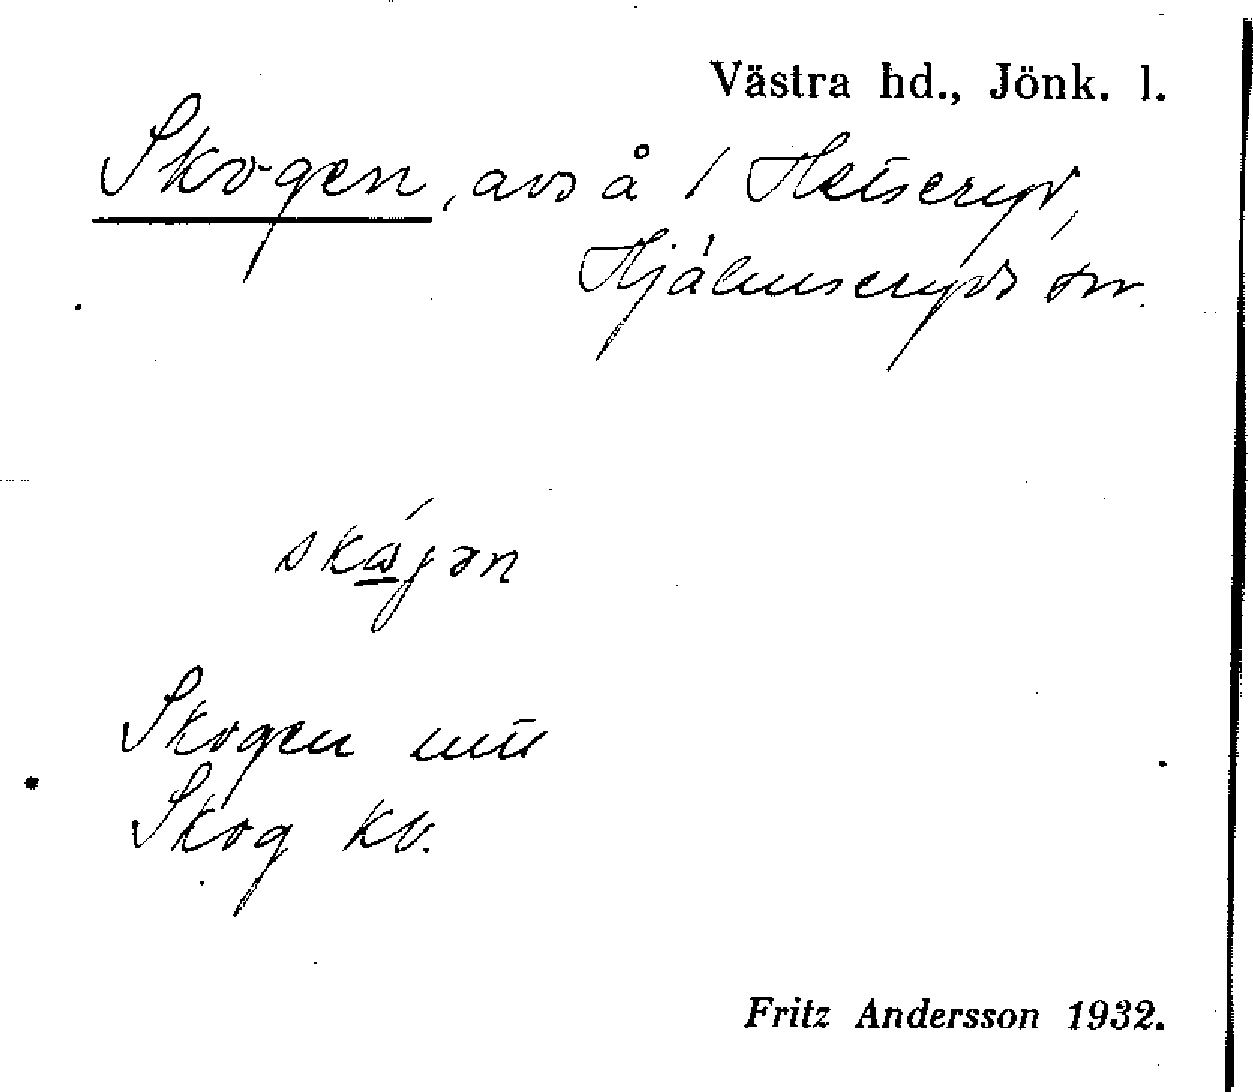 Västra hd., Jönk. l.
Skogen, avs å 1 Hetseryd,
Hjälmseryds sn.
skågən
Skogen mtl
Skog kb.
Fritz Andersson 1932.